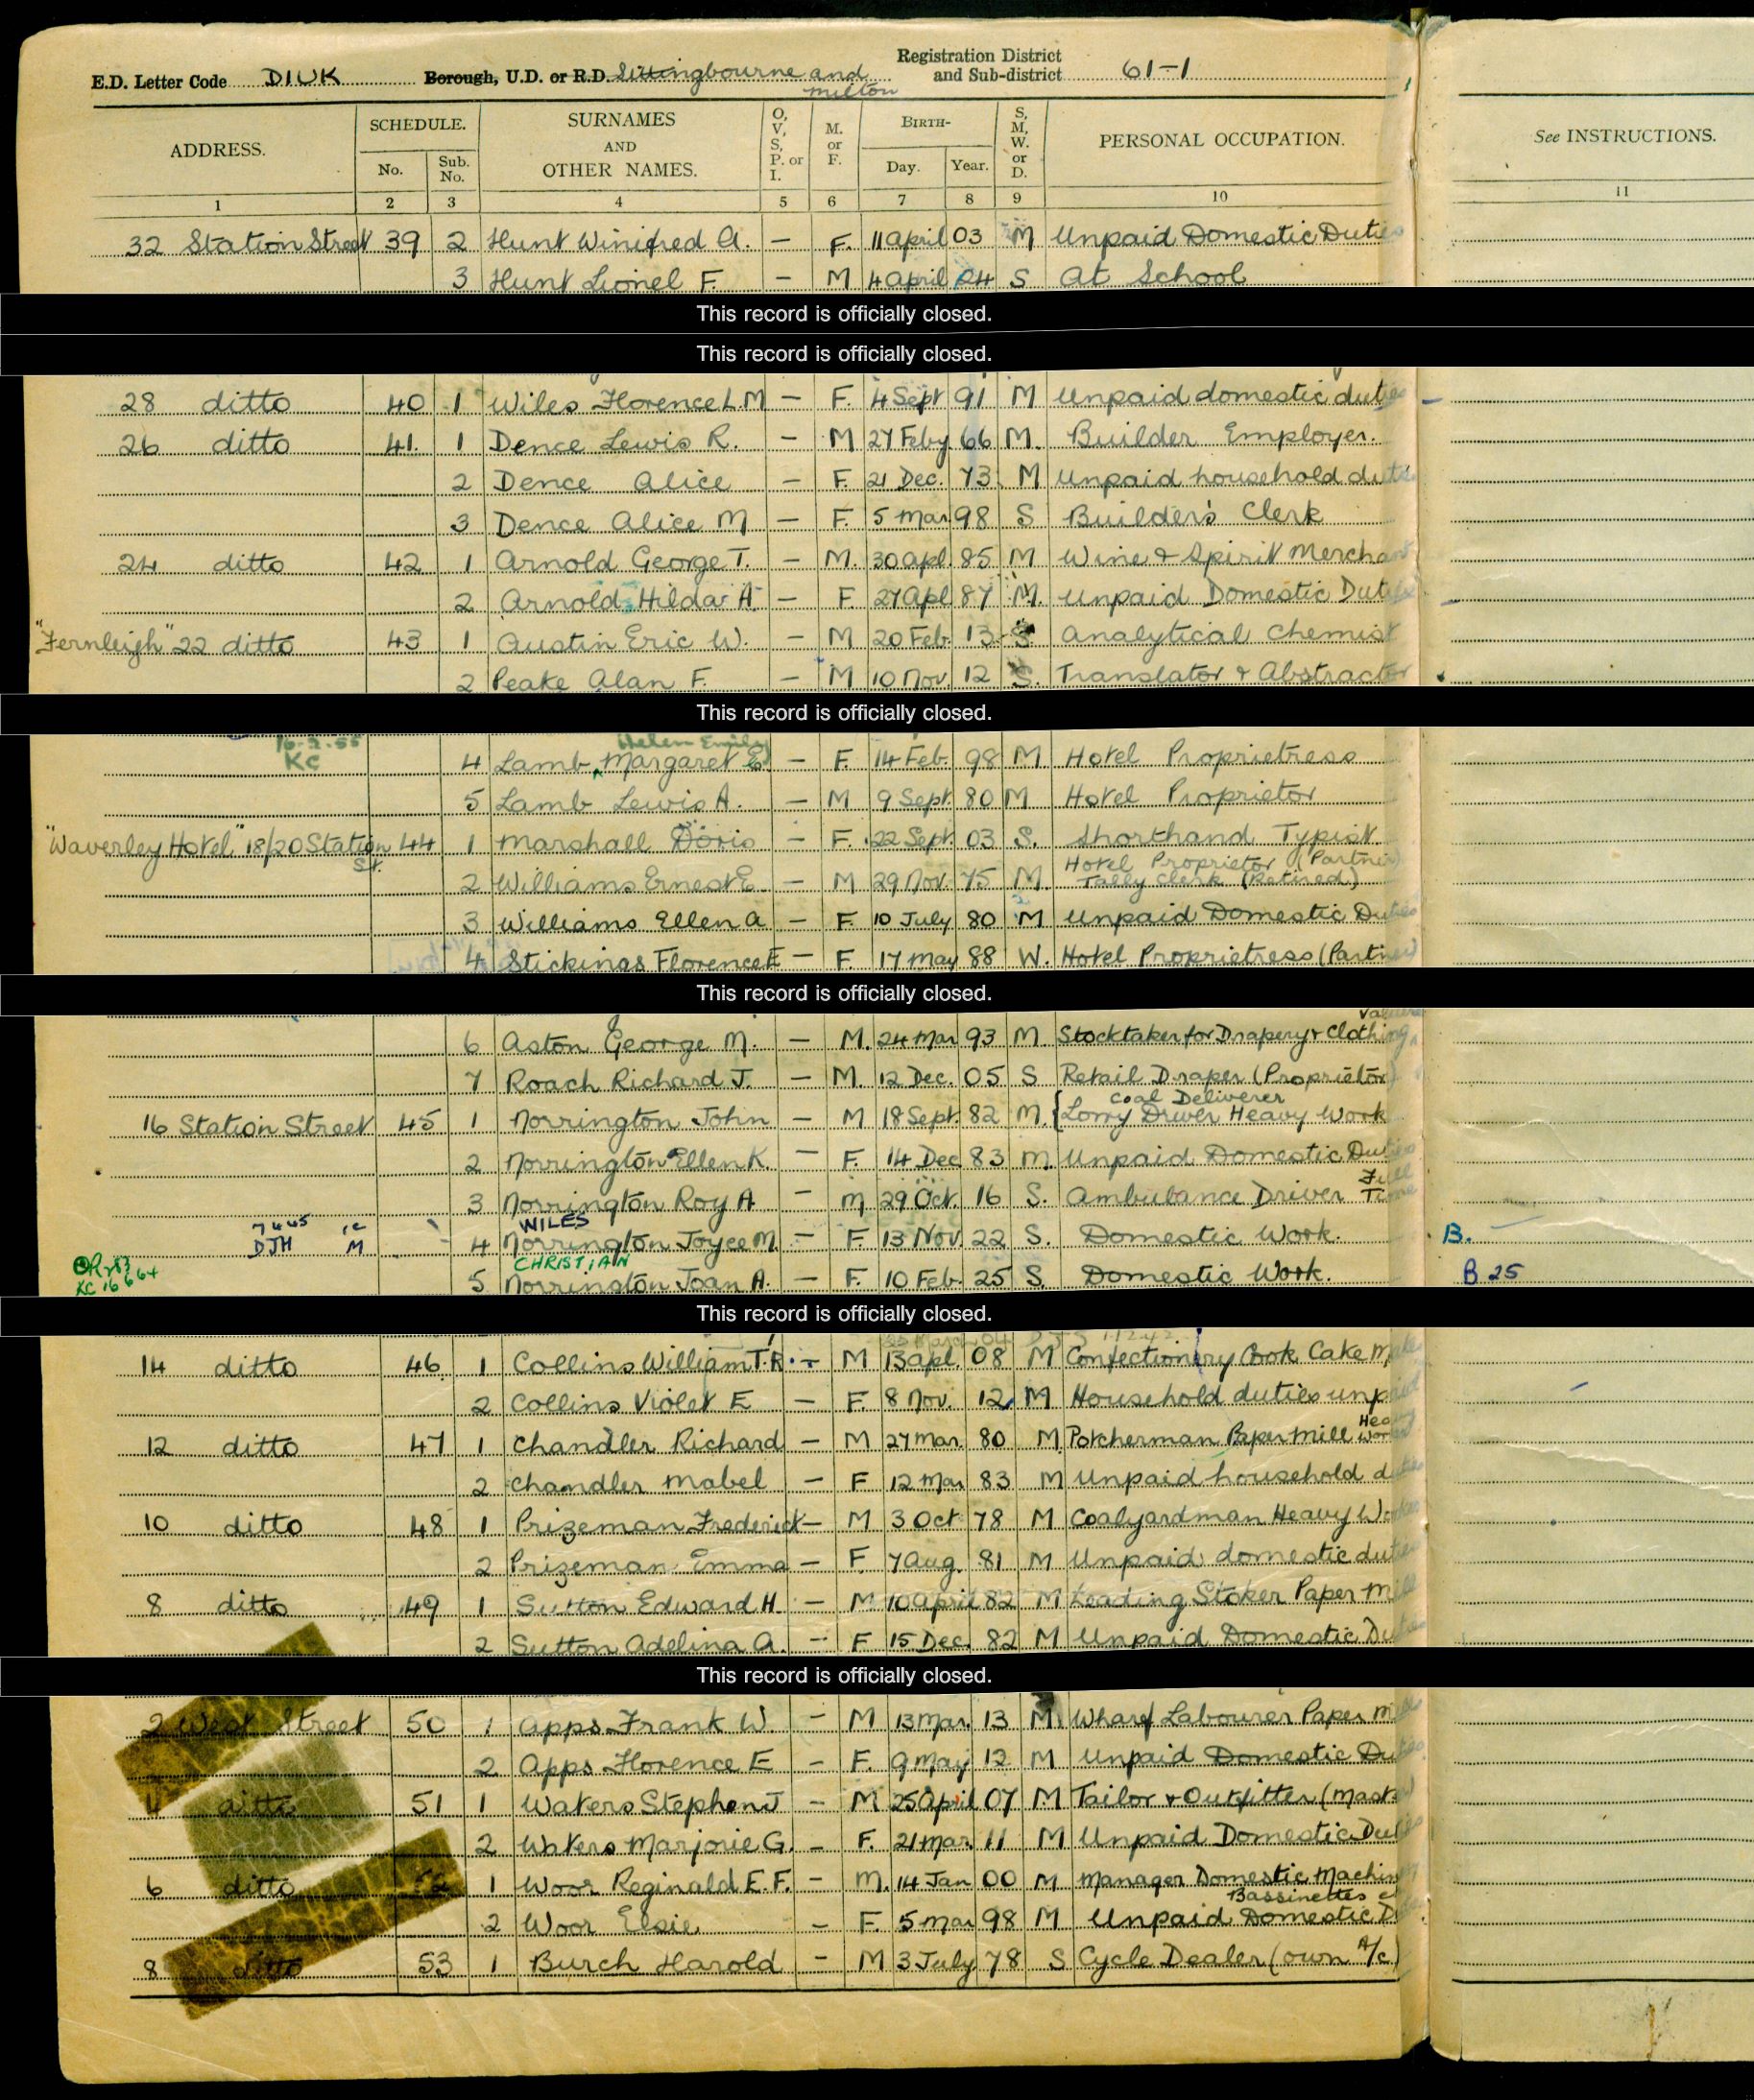 E.D. Letter Code DIUK Borough, U.D. or R.D. Sittingbourne and Milton Registration District and Sub-district 61-1
ADDRESS. SCHEDULE. No. Sub. No. SURNAMES AND OTHER NAMES. O, V, S, P. or I. M. or F. BIRTH- Day. Year. S, M, W. or D. PERSONAL OCCUPATION. See INSTRUCTIONS.
1 2 3 4 5 6 7 8 9 10 11
32 Station Street 39 2 Hunt Winifred A. — F. 11 April 03 M Unpaid Domestic Duties
3 Hunt Lionel F. — M 4 April 04 S At School
This record is officially closed.
This record is officially closed.
28 ditto 40 1 Wiles Florence L.M — F. 4 Sept 91 M Unpaid domestic duties
26 ditto 41. 1 Dence Lewis R. — M 27 Feby 66 M. Builder Employer.
2 Dence Alice — F. 21 Dec. 73 M Unpaid household duties
3 Dence Alice M — F. 5 Mar 98 S Builder's Clerk
24 ditto 42 1 Arnold George T. — M. 30 Apl. 85 M Wine & Spirit Merchant
2 Arnold Hilda A — F. 27 Apl 87 M. Unpaid Domestic Duties
"Fernleigh" 22 ditto 43 1 Austin Eric W. — M 20 Feb. 13 S. Analytical Chemist
2 Peake Alan F. — M 10 Nov. 12 S. Translator & Abstractor
This record is officially closed.
16-2-55 KC Helen Emily
4 Lamb Margaret E. — F. 14 Feb. 98 M Hotel Proprietress
5 Lamb Lewis A. — M 9 Sept. 80 M Hotel Proprietor
"Waverley Hotel" 18/20 Station St. 44 1 Marshall Doris — F. 22 Sept 03 S. Shorthand Typist.
2 Williams Ernest E. — M 29 Nov. 75 M. Hotel Proprietor (Partner) Tally Clerk (Retired)
3 Williams Ellen A — F. 10 July 80 M Unpaid Domestic Duties
4 Stickings Florence E — F. 17 May 88 W. Hotel Proprietress (Partner)
This record is officially closed.
6 Aston George M. — M. 24 Mar 93 M Stocktaker for Drapery & Clothing. Valuer
7 Roach Richard J. — M. 12 Dec. 05 S Retail Draper (Proprietor)
16 Station Street 45 1 Norrington John — M 18 Sept. 82 M. { Coal Deliverer Lorry Driver Heavy Work
2 Norrington Ellen K. — F. 14 Dec 83 M. Unpaid Domestic Duties
3 Norrington Roy A — M 29 Oct. 16 S. Ambulance Driver Full Time
7445 DJH M WILES
4 Norrington Joyce M. — F. 13 Nov. 22 S. Domestic Work. B.
KC 16664 CHRISTIAN
5 Norrington Joan A. — F. 10 Feb. 25 S. Domestic Work. B 25
This record is officially closed.
14 ditto 46 1 Collins William T.R. — M 13 Apl. 08 M Confectionery Cook Cake Maker
2 Collins Violet E — F. 8 Nov. 12 M Household duties unpaid
12 ditto 47 1 Chandler Richard — M 27 Mar. 80 M. Potcherman Paper Mill Heavy Worker
2 Chandler Mabel — F 12 Mar 83 M Unpaid household duties
10 ditto 48 1 Prizeman Frederick — M 3 Oct 78 M Coalyardman Heavy Worker
2 Prizeman Emma — F. 7 Aug. 81 M Unpaid domestic duties
8 ditto 49 1 Sutton Edward H. — M 10 April 82 M Leading Stoker Paper Mill
2 Sutton Adelina A. — F 15 Dec. 82 M Unpaid Domestic Duties
This record is officially closed.
2 West Street 50 1 Apps Frank W. — M 13 Mar. 13 M. Wharf Labourer Paper Mills
2 Apps Florence E — F. 9 May 12 M Unpaid Domestic Duties
4 ditto 51 1 Waters Stephen J — M 25 April 07 M Tailor & Outfitter (Master)
2 Waters Marjorie G. — F. 21 Mar. 11 M Unpaid Domestic Duties
6 ditto 52 1 Woor Reginald E.F. — M. 14 Jan 00 M Manager Domestic Machines Bassinettes
2 Woor Elsie — F. 5 Mar 98 M Unpaid Domestic D
8 ditto 53 1 Burch Harold — M 3 July 78 S Cycle Dealer (own A/c)